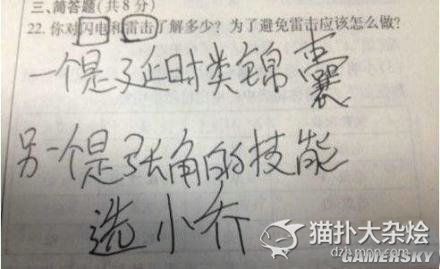 三、简答题(共8分)
22. 你对闪电和雷击了解多少？为了避免雷击应该怎么做？
一个是延时类锦囊
另一个是张角的技能
选小乔
猫扑大杂烩
dzh.mop.com
GAMERSKY